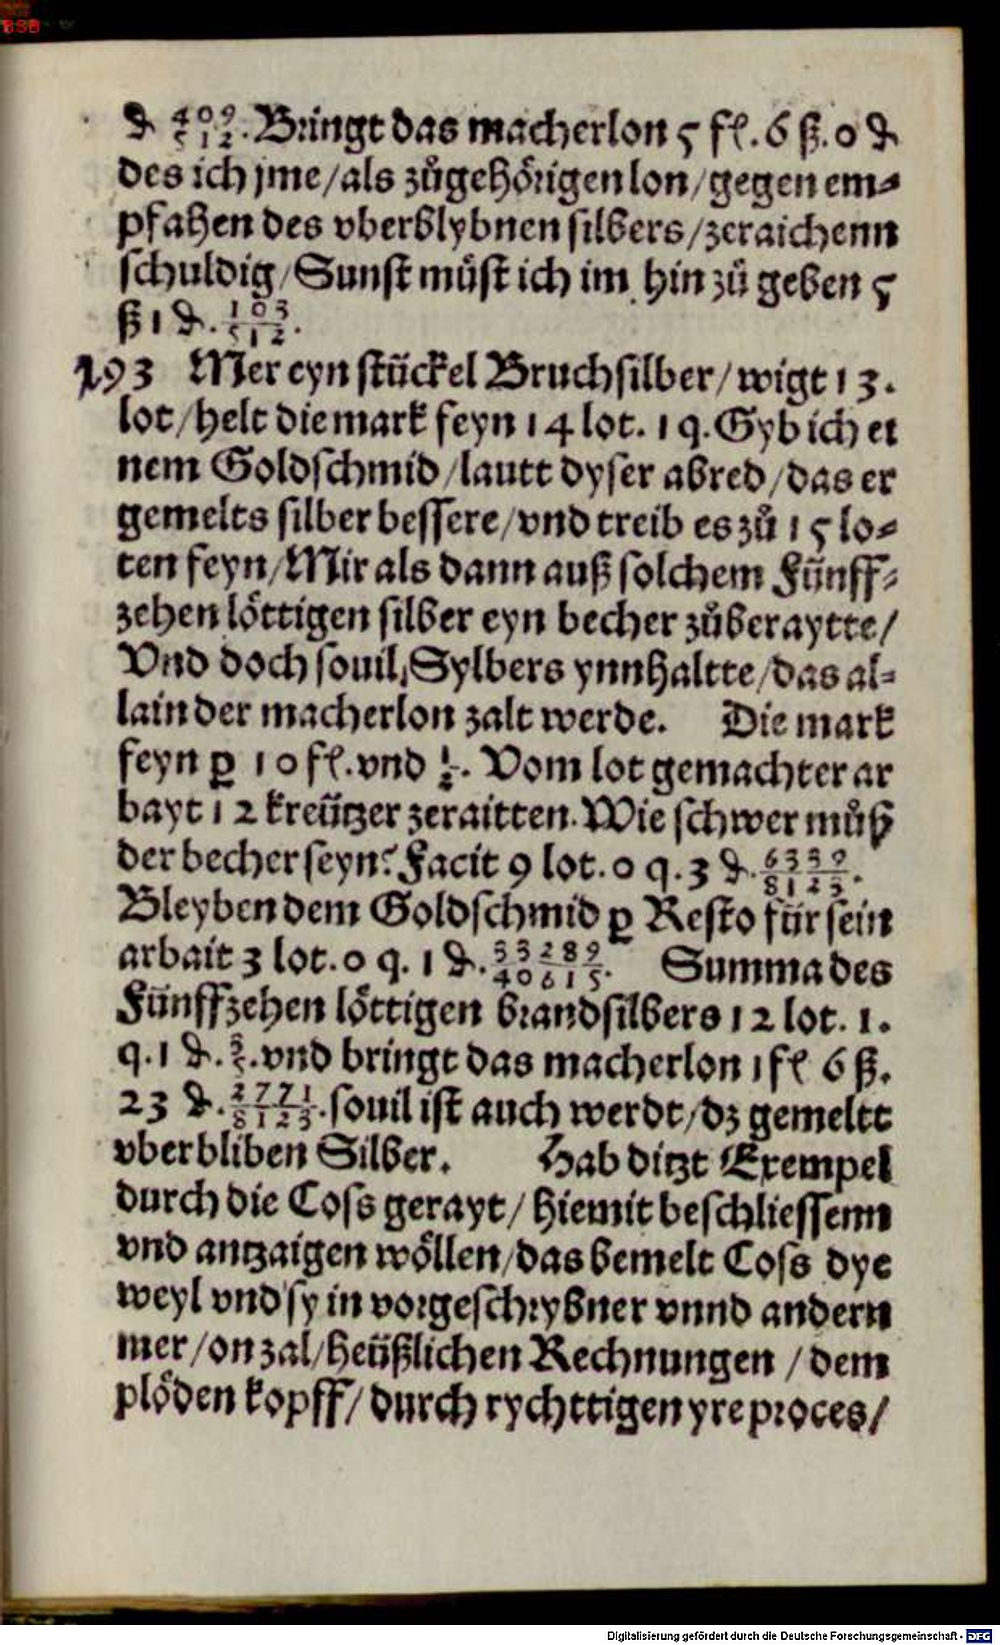 BSB
₰ 409/512. Bringt das macherlon 5 fl. 6 ß. 0 ₰
des ich jme/als zůgehörigen lon/gegen em⸗
pfahen des vberblybnen silbers/zeraichenn
schuldig/Sunst müst ich im hin zů geben 5
ß 1 ₰. 103/512.
193 Mer eyn stückel Bruchsilber/wigt 13.
lot/helt die mark feyn 14 lot. 1 q. Gyb ich ei
nem Goldschmid/lautt dyser abred/das er
gemelts silber bessere/vnd treib es zů 15 lo⸗
ten feyn/Mir als dann auß solchem Fünff⸗
zehen löttigen silber eyn becher zůberaytte/
Vnd doch souil Sylbers ynnhaltte/das al⸗
lain der macherlon zalt werde. Die mark
feyn ꝑ 10 fl. vnd ½. Vom lot gemachter ar
bayt 12 kreützer zeraitten. Wie schwer můß
der becher seyn? Facit 9 lot. 0 q. 3 ₰. 6339/8123.
Bleyben dem Goldschmid ꝑ Resto für sein
arbait 3 lot. 0 q. 1 ₰. 33289/40615. Summa des
Fünffzehen löttigen brandsilbers 12 lot. 1.
q. 1 ₰. 3/5. vnd bringt das macherlon 1 fl 6 ß.
23 ₰. 2771/8123. souil ist auch werdt/dz gemeltt
vberbliben Silber. Hab ditzt Exempel
durch die Coss gerayt/hiemit beschliessenn
vnd antzaigen wöllen/das bemelt Coss dye
weyl vnd sy in vorgeschrybner vnnd andern
mer/on zal/heüßlichen Rechnungen/dem
plöden kopff/durch rychttigen yre proces/
Digitalisierung gefördert durch die Deutsche Forschungsgemeinschaft - DFG